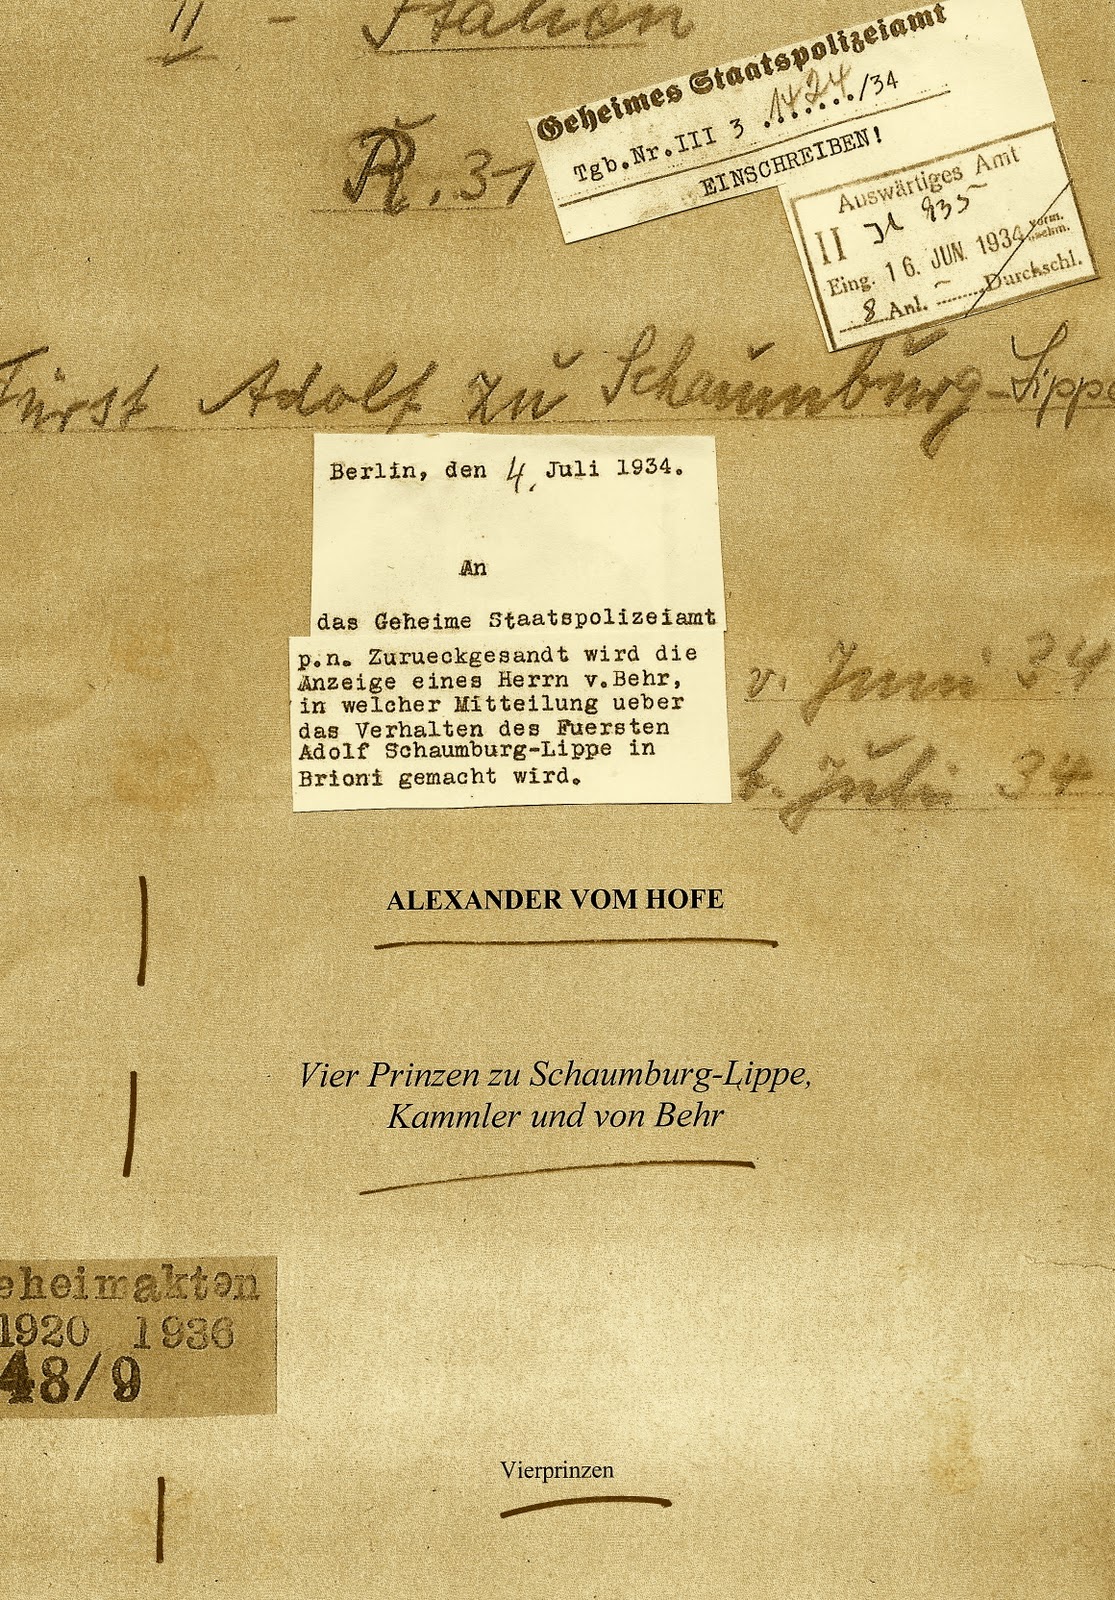 II - Italien
R. 31
Geheimes Staatspolizeiamt
Tgb.Nr.III 3 1424/34
EINSCHREIBEN!
Auswärtiges Amt
II
935
Eing. 16. JUN. 1934 vorm.
nachm.
8 Anl. ........Durchschl.
Fürst Adolf zu Schaumburg-Lippe
Berlin, den 4. Juli 1934.
An
das Geheime Staatspolizeiamt
p.n. Zurueckgesandt wird die
Anzeige eines Herrn v.Behr,
in welcher Mitteilung ueber
das Verhalten des Fuersten
Adolf Schaumburg-Lippe in
Brioni gemacht wird.
v. Juni 34
b. Juli 34
ALEXANDER VOM HOFE
Vier Prinzen zu Schaumburg-Lippe,
Kammler und von Behr
eheimakten
1920 1936
48/9
Vierprinzen